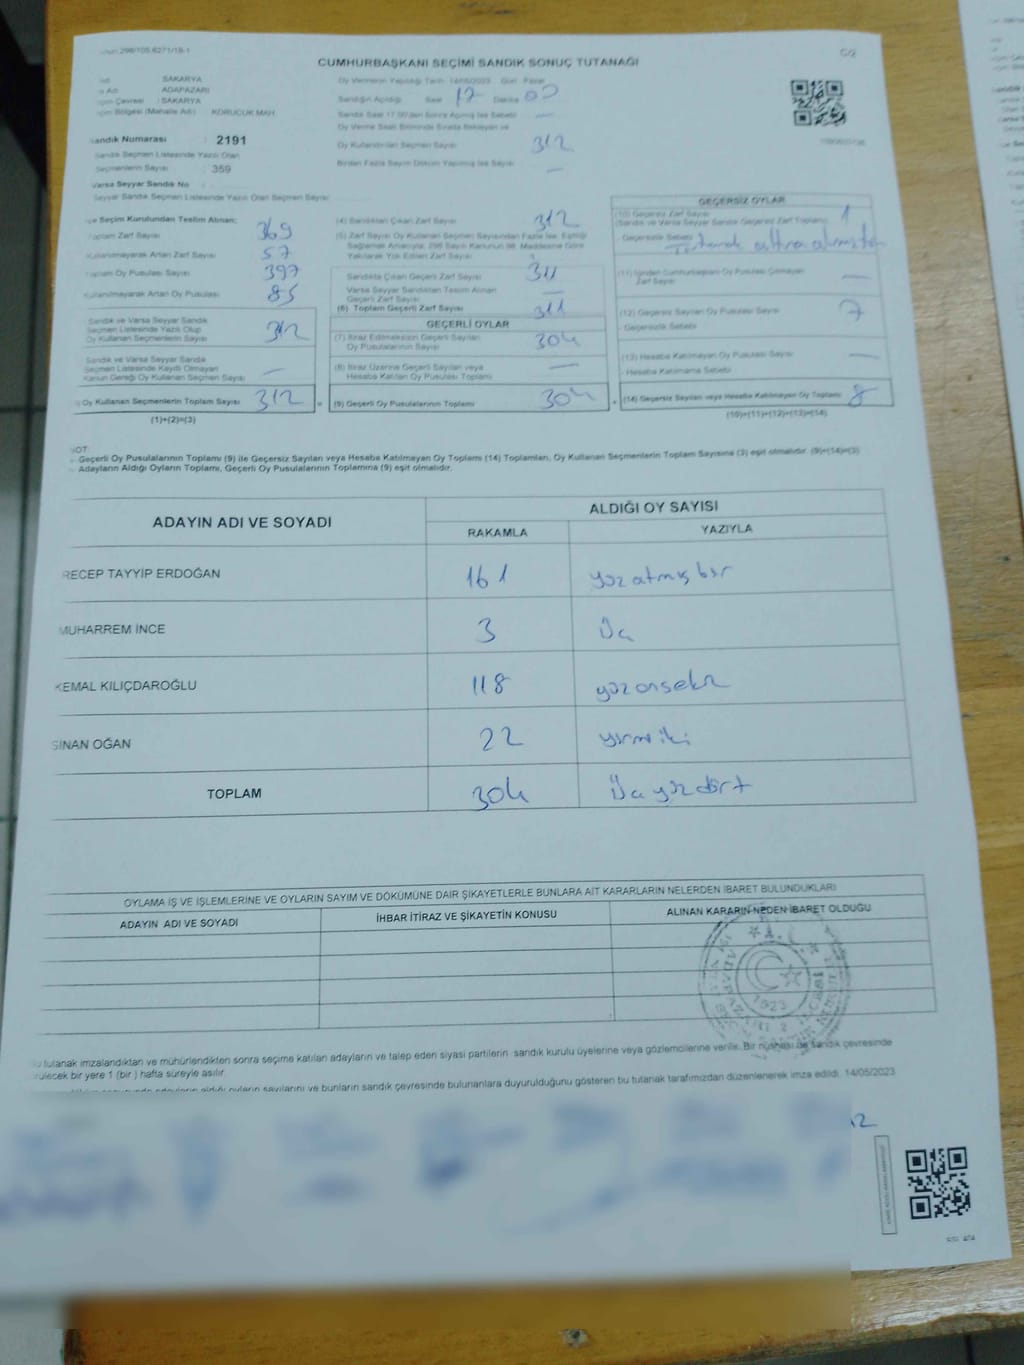 CUMHURBAŞKANI SEÇİMİ SANDIK SONUÇ TUTANAĞI
C/2
SAKARYA
ADAPAZARI
SAKARYA
KORUCUK MAH.
Oy Vermenin Yapıldığı Tarih 14/05/2023 Gün Pazar
Sandığın Açıldığı Saat 17 Dakika 00
Sandık Saat 17.00'den Sonra Açılmış İse Sebebi —
Oy Verme Saati Bitiminde Sırada Bekleyen ve
Oy Kullandırılan Seçmen Sayısı 312
Birden Fazla Sayım Döküm Yapılmış İse Sayısı —
Sandık Numarası : 2191
Sandık Seçmen Listesinde Yazılı Olan
Seçmenlerin Sayısı : 359
Varsa Seyyar Sandık No :
Seyyar Sandık Seçmen Listesinde Yazılı Olan Seçmen Sayısı
Seçim Kurulundan Teslim Alınan;
Toplam Zarf Sayısı 369
Kullanılmayarak Artan Zarf Sayısı 57
Toplam Oy Pusulası Sayısı 397
Kullanılmayarak Artan Oy Pusulası 85
Sandık ve Varsa Seyyar Sandık
Seçmen Listesinde Yazılı Olup
Oy Kullanan Seçmenlerin Sayısı 312
Sandık ve Varsa Seyyar Sandık
Seçmen Listesinde Kayıtlı Olmayan
Kanun Gereği Oy Kullanan Seçmen Sayısı —
Oy Kullanan Seçmenlerin Toplam Sayısı 312
(1)+(2)=(3)
(4) Sandıktan Çıkan Zarf Sayısı 312
(5) Zarf Sayısı Oy Kullanan Seçmen Sayısından Fazla İse, Eşitliği
Sağlamak Amacıyla, 298 Sayılı Kanunun 98. Maddesine Göre
Yakılarak Yok Edilen Zarf Sayısı
Sandıkta Çıkan Geçerli Zarf Sayısı 311
Varsa Seyyar Sandıktan Teslim Alınan
Geçerli Zarf Sayısı —
(6) Toplam Geçerli Zarf Sayısı 311
GEÇERLİ OYLAR
(7) İtiraz Edilmeksizin Geçerli Sayılan
Oy Pusulalarının Sayısı 304
(8) İtiraz Üzerine Geçerli Sayılan veya
Hesaba Katılan Oy Pusulası Toplamı —
(9) Geçerli Oy Pusulalarının Toplamı 304
GEÇERSİZ OYLAR
(10) Geçersiz Zarf Sayısı
(Sandık ve Varsa Seyyar Sandık Geçersiz Zarf Toplamı) 1
Geçersizlik Sebebi
(11) İçinden Cumhurbaşkanı Oy Pusulası Çıkmayan
Zarf Sayısı —
(12) Geçersiz Sayılan Oy Pusulası Sayısı 7
Geçersizlik Sebebi
(13) Hesaba Katılmayan Oy Pusulası Sayısı —
Hesaba Katılmama Sebebi
(14) Geçersiz Sayılan veya Hesaba Katılmayan Oy Toplamı 8
(10)+(11)+(12)+(13)=(14)
NOT:
- Geçerli Oy Pusulalarının Toplamı (9) ile Geçersiz Sayılan veya Hesaba Katılmayan Oy Toplamı (14) Toplamları, Oy Kullanan Seçmenlerin Toplam Sayısına (3) eşit olmalıdır. (9)+(14)=(3)
- Adayların Aldığı Oyların Toplamı, Geçerli Oy Pusulalarının Toplamına (9) eşit olmalıdır.
ADAYIN ADI VE SOYADI
ALDIĞI OY SAYISI
RAKAMLA YAZIYLA
RECEP TAYYİP ERDOĞAN 161 yüz atmış bir
MUHARREM İNCE 3 Üç
KEMAL KILIÇDAROĞLU 118 yüzonsekiz
SİNAN OĞAN 22 yirmi iki
TOPLAM 304 Üç yüz dört
OYLAMA İŞ VE İŞLEMLERİNE VE OYLARIN SAYIM VE DÖKÜMÜNE DAİR ŞİKAYETLERLE BUNLARA AİT KARARLARIN NELERDEN İBARET BULUNDUKLARI
ADAYIN ADI VE SOYADI İHBAR İTİRAZ VE ŞİKAYETİN KONUSU ALINAN KARARIN NEDEN İBARET OLDUĞU
1923
tutanak imzalandıktan ve mühürlendikten sonra seçime katılan adayların ve talep eden siyasi partilerin sandık kurulu üyelerine veya gözlemcilerine verilir. Bir nüshası da sandık çevresinde
bir yere 1 (bir) hafta süreyle asılır.
adayların aldığı oyların sayılarını ve bunların sandık çevresinde bulunanlara duyurulduğunu gösteren bu tutanak tarafımızdan düzenlenerek imza edildi. 14/05/2023